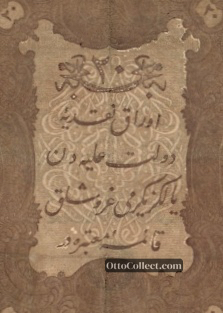 ٢٠
٢٠
٢٠
اوراق نقدیهٔ
دولت علیه دن
یالکز یکرمی غروشلق
قائمهٔ معتبره در
OttoCollect.com